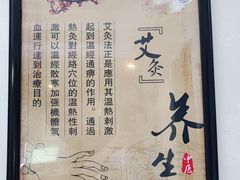 『艾灸』
养生
中医
艾灸法正是應用其溫熱刺激
起到溫經通痹的作用。通過
熱灸對經絡穴位的溫熱性刺
激可以溫經散寒加强機體氣
血運行達到治療目的